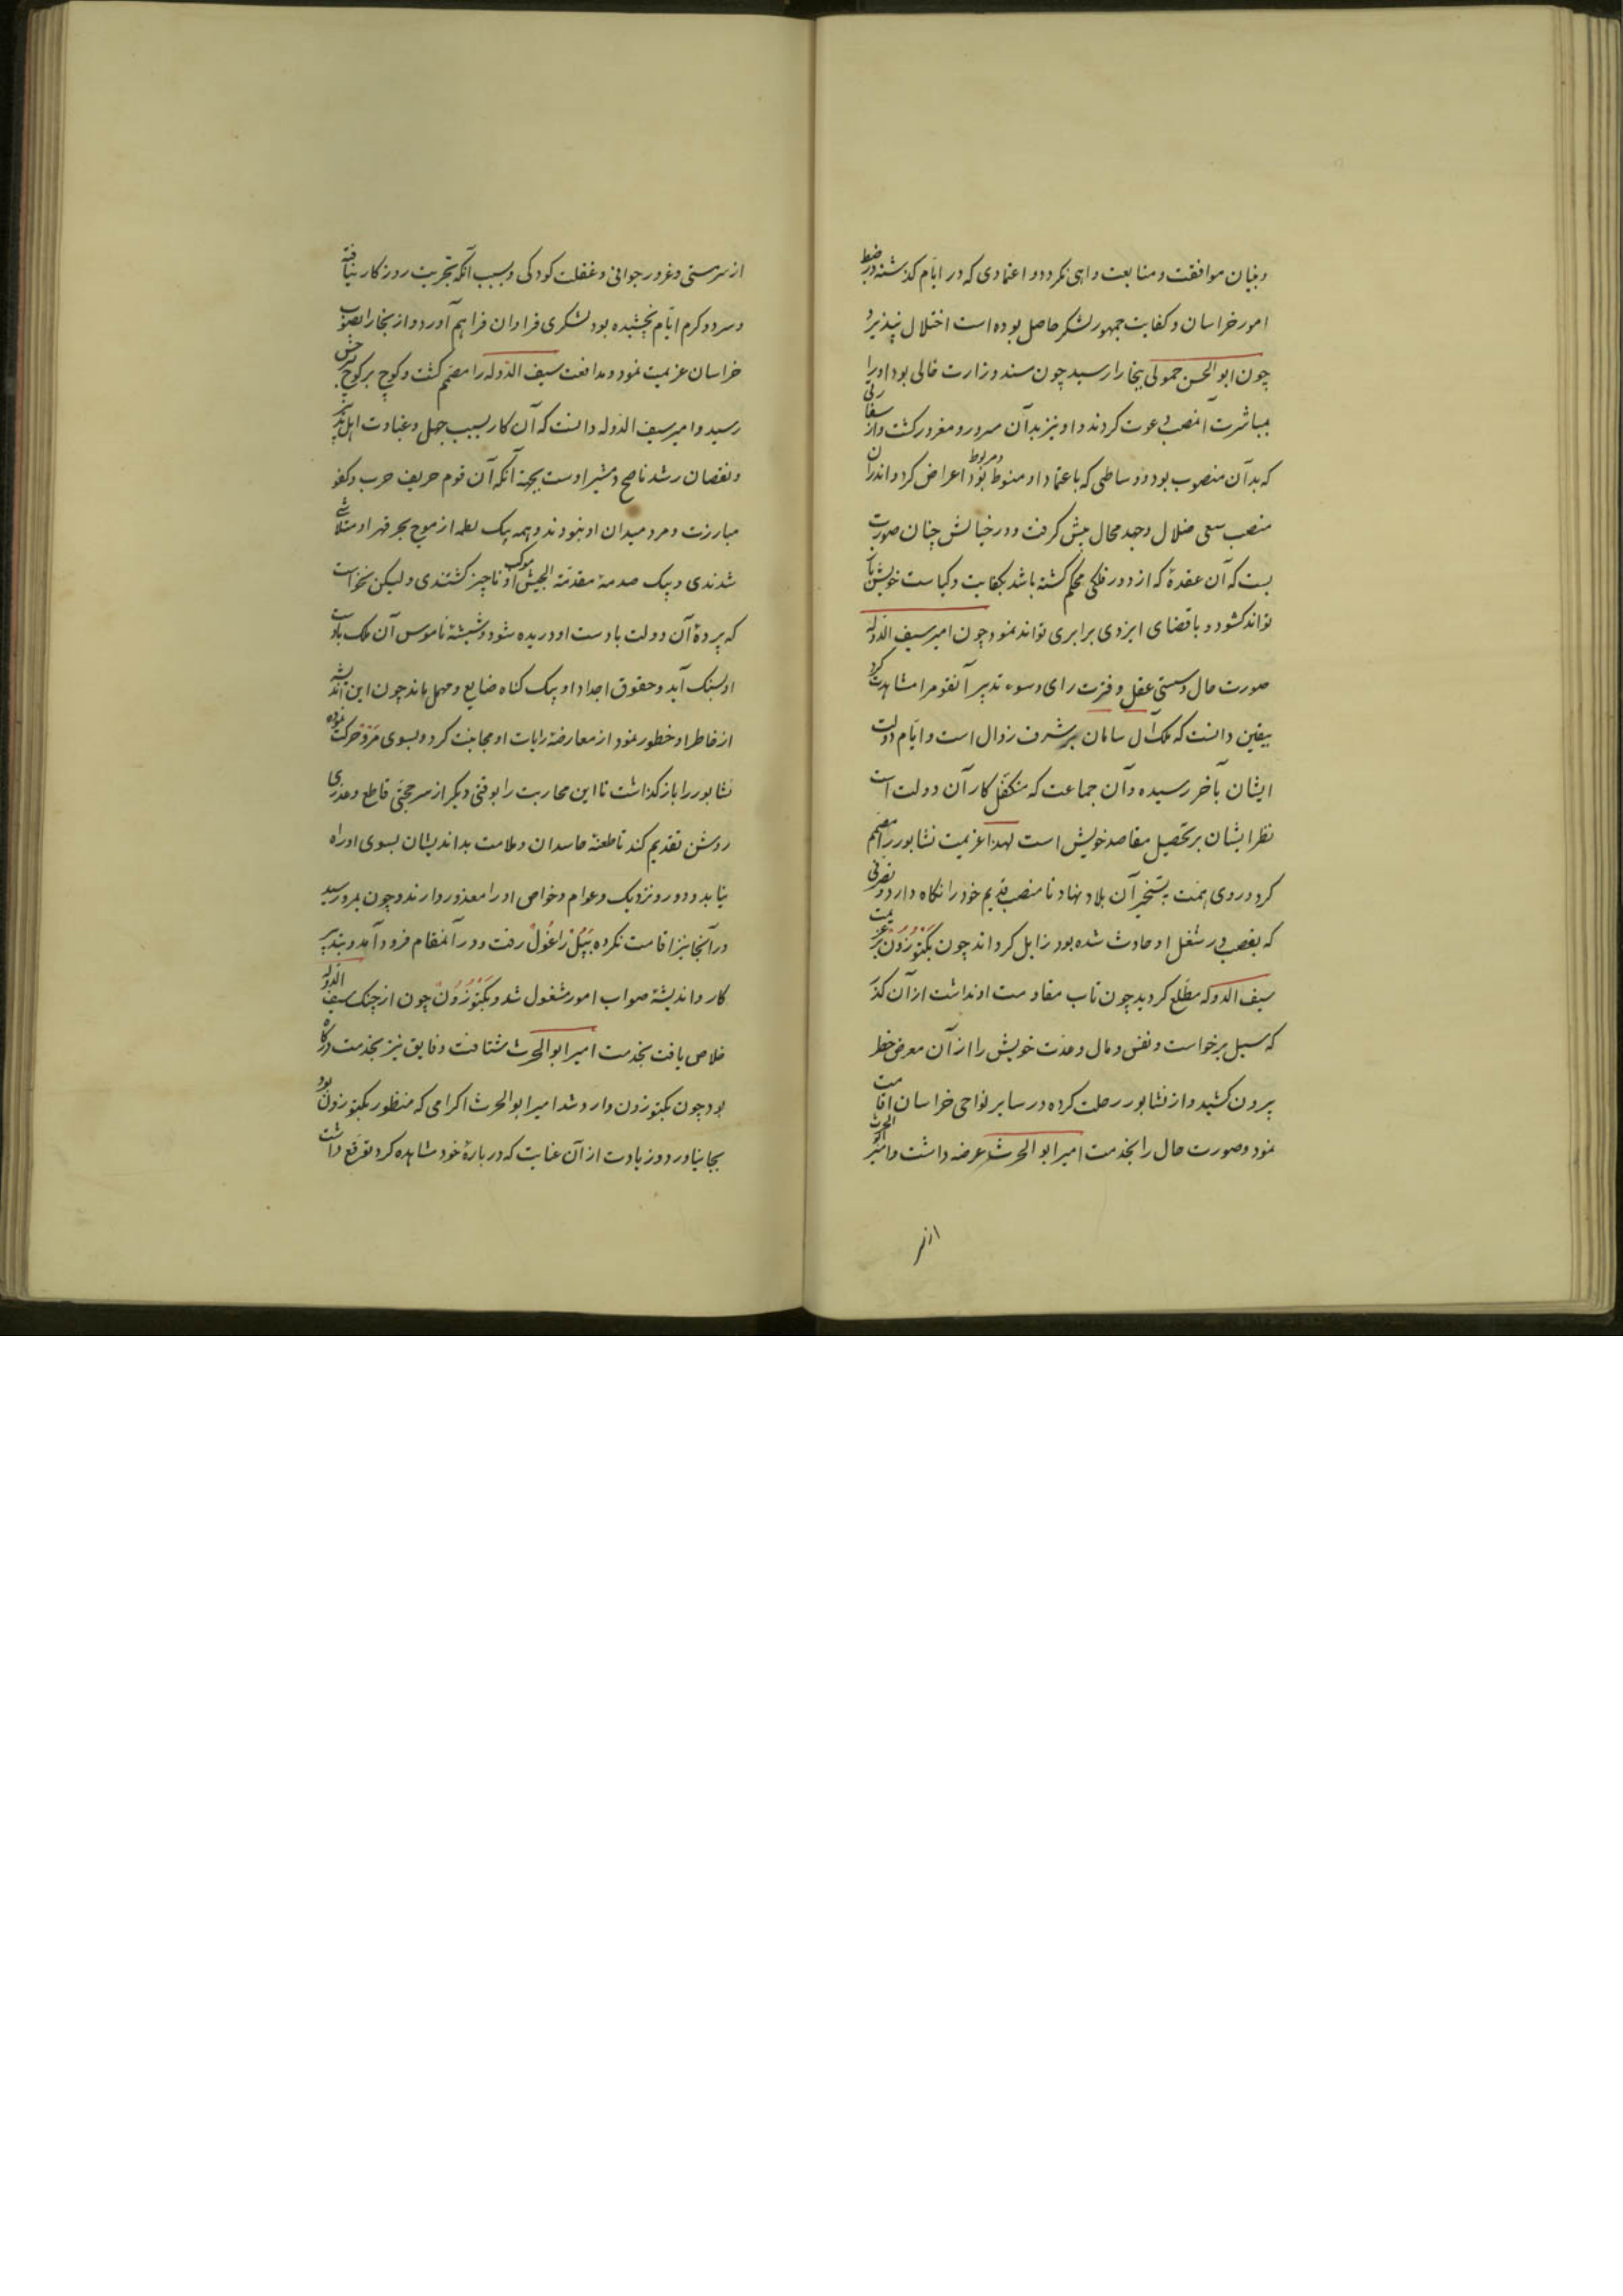 و بنیان موافقت و متابعت واهی نکردد و اعتمادی که در ایام کذشته در ضبط
امور خراسان و کفایت جمهور لشکر حاصل بوده است اختلال نپذیرد
چون ابو الحسن حمولی ببخارا رسید چون مسند وزارت خالی بود او را
بمباشرت آنمنصب دعوت کردند و او نیز بدآن مسرور و مغرور کشت و از سفارتی
که بدآن منصوب بود و وساطتی که باعتماد او منوط و مربوط بود اعراض کرد و اندر آن
منصب سعی ضلال و جهد محال پیش کرفت و در خیالش چنان صورت
بست که آن عقدۀ که از دور فلکی محکم کشته باشد بکفایت و کیاست خویش باز
تواند کشود و با قضای ایزدی برابری تواند نمود چون امیر سیف الدوله
صورت حال و سستی عقل و فترت رای و سوء تدبیر آنقوم را مشاهدت کرد
بیقین دانست که ملک آل سامان بر شرف زوال است و ایام دولت
ایشان بآخر رسیده و آن جماعت که متکفل کار آن دولت است
نظر ایشان بر تحصیل مقاصد خویش است لهذا عزیمت نشابور را مصمم
کرد و روی همت بتسخیر آن بلاد نهاد تا منصب قدیم خود را نکاه دارد و تصرفی
که بغصب در شغل او حادث شده بود زایل کرداند چون بکتوزون بر عزیمت
سیف الدوله مطلع کردید چون تاب مقاومت او نداشت از آن کذر
که سیل برخواست و نفس و مال و عدت خویش را از آن معرض خطر
بیرون کشید و از نشابور رحلت کرده در سایر نواحی خراسان اقامت
نمود و صورت حال را بخدمت امیر ابو الحرث عرضه داشت و امیر ابو الحرث
از سر
از سر مستی و غرور جوانی و غفلت کودکی و بسبب آنکه تجربت روزکار نیافته
و سرد و کرم ایام نچشیده بود لشکری فراوان فراهم آورد و از بخارا بصوب
خراسان عزیمت نمود و مدافعت سیف الدوله را مصمم کشت و کوچ بر کوچ بسرخس
رسید و امیر سیف الدوله دانست که آن کار بسبب جهل و غباوت اهل تدبیر
و نقصان رشد ناصح و مشیر اوست بجهة آنکه آن قوم حریف حرب و کفو
مبارزت و مرد میدان او نبودند و همه بیک لطمه از موج بحر قهر او متلاشی
شدندی و بیک صدمۀ مقدمة الجیش موکب او ناچیز کشتندی ولیکن نخواست
که پردۀ آن دولت بادست او دریده شود و شیشۀ ناموس آن ملک بادست
او بسنک آید و حقوق اجداد او بیک کناه ضایع و مهمل ماند چون این اندیشه
از خاطر او خطور نمود از معارضۀ رایات او مجانبت کرد و بسوی مرو حرکت نموده
نشابور را باز کذاشت تا این محاربت را بوقتی دیکر از سر حجتی قاطع و عذری
روشن تقدیم کند تا طعنۀ حاسدان و ملامت بداندیشان بسوی او راه
نیابد و دور و نزدیک و عوام و خواص او را معذور دارند و چون بمرو رسید
در آنجا نیز اقامت نکرده بپل زاغول رفت و در آنمقام فرود آمد و بتدبیر
کار و اندیشۀ صواب امور مشغول شد و بکتوزون چون از چنک سیف الدوله
خلاص یافت بخدمت امیر ابو الحرث شتافت و فایق نیز بخدمت درکاه
بود چون بکتوزون وارد شد امیر ابو الحرث اکرامی که منظور بکتوزون بود
بجا نیاورد و زیادت از آن عنایت که دربارۀ خود مشاهده کرد توقع داشت